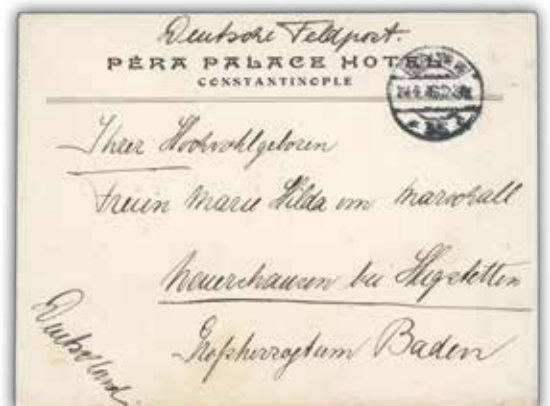 Deutsche Feldpost.
PÉRA PALACE HOTEL
CONSTANTINOPLE
Ihrer Hochwohlgeboren
Freiin Marie Hilda von Marschall
Neuershausen bei Hugstetten
Großherzogtum Baden
Deutschland